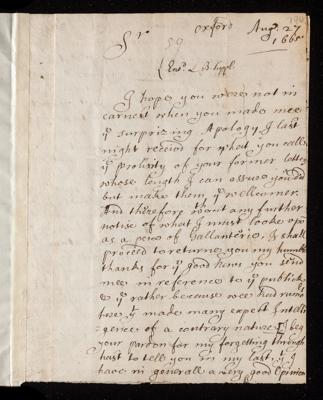 Oxford Aug. 27
1665
Sr
59
(Entd. L. B. Suppl.
I hope you were not in
earnest when you made mee
ye surprizing Apology I last
night receivd for what you call
ye prolixity of your former letters
whose length I can assure you did
but make them ye wellcomer.
And therefore without any further
notice of what I must looke upō
as a piece of Gallanterie, I shall
proceed to returne you my humble
thanks for ye good news you send
mee in reference to ye publick
& ye rather because wee had rumors
here yt made many expect Intelli-
gence of a contrary nature. I beg
your pardon for my forgetting through
hast to tell you in my last, yt I
have in generall a very good Opinion